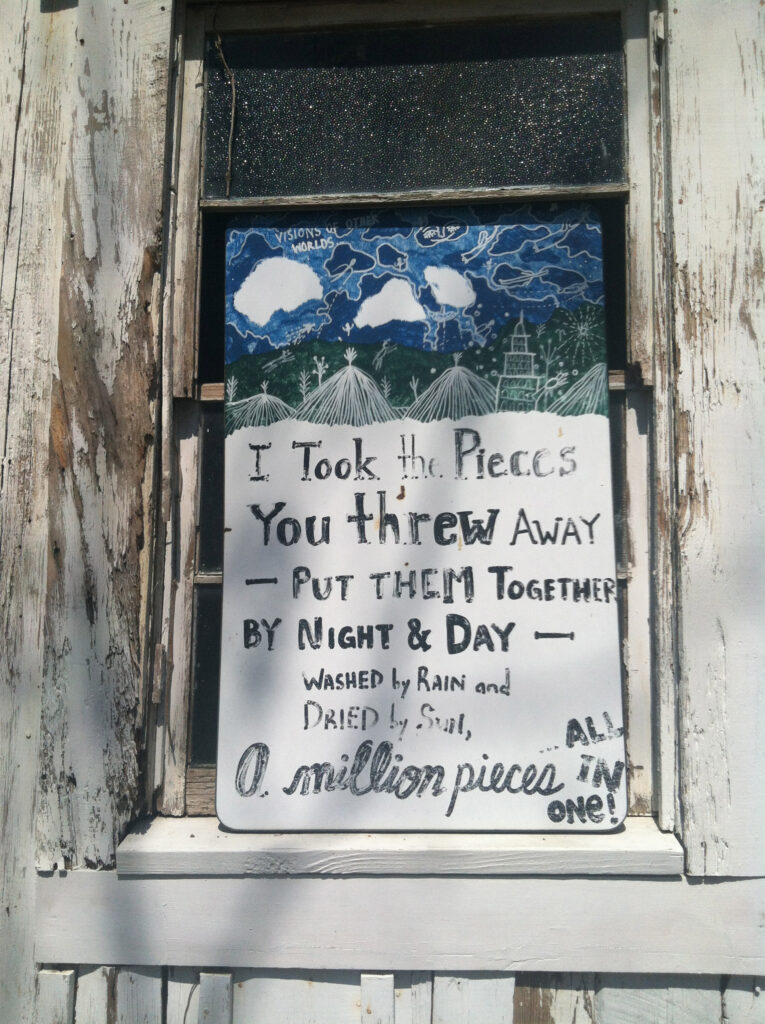 VISIONS OF OTHER
WORLDS
I Took the Pieces
You threw AWAY
— PUT THEM TOGETHER
BY NIGHT & DAY —
WASHED by RAIN and
DRIED by SUN,
A million pieces
...ALL
IN
ONE!